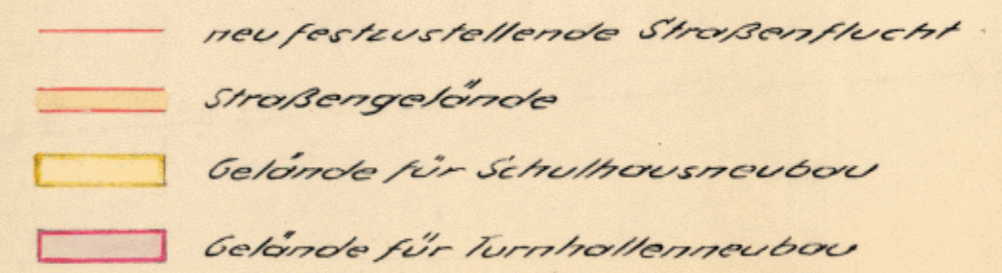 neu festzustellende Straßenflucht
Straßengelände
Gelände für Schulhausneubau
Gelände für Turnhallenneubau